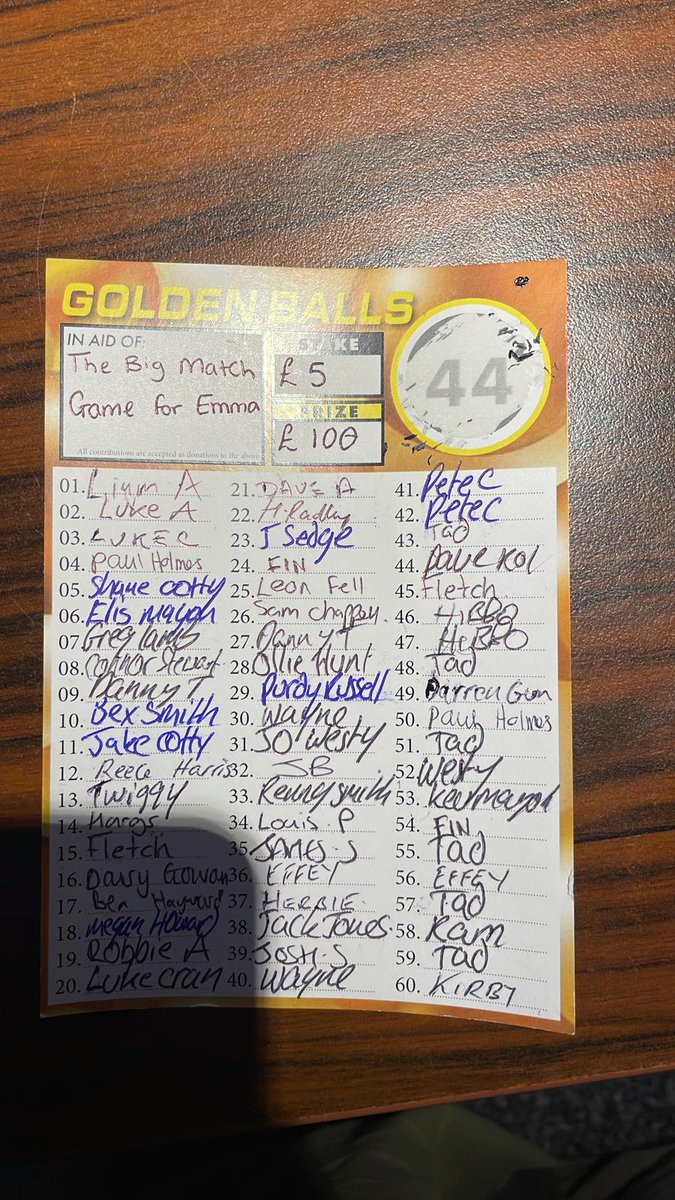 GOLDEN BALLS
IN AID OF:
The Big Match
Game for Emma
All contributions are accepted as donations to the above
STAKE
£ 5
PRIZE
£ 100
44
01. Liam A
02. Luke A
03. LUKE C
04. Paul Holmes
05. Shane Cotty
06. Elis Mayon
07. Greg Lamb
08. Connor Stewart
09. Danny T
10. Bex Smith
11. Jake Cotty
12. Reece Harris
13. Twiggy
14. Hargs
15. Fletch
16. Davy Gowan
17. Ben Hayward
18. Megan Howard
19. Robbie A
20. Luke Cran
21. DAVE A
22. H Radley
23. J Sedge
24. FIN
25. Leon Fell
26. Sam
27. Danny T
28. Ollie Hunt
29. Purdy Russell
30. Wayne
31. JO Westy
32. JB
33. Kenny Smith
34. Louis P
35. JAMES S
36. EFFEY
37. HERBIE
38. Jack Jones
39. JOSH S
40. Wayne
41. Pete C
42. Pete C
43. Tad
44. Dave Kol
45. Fletch
46. HiBBO
47. HiBBO
48. Tad
49. Darren Gum
50. Paul Holmes
51. Tad
52. Westy
53. Kev Mayon
54. FIN
55. Tad
56. EFFEY
57. Tad
58. Ram
59. Tad
60. KIRBY